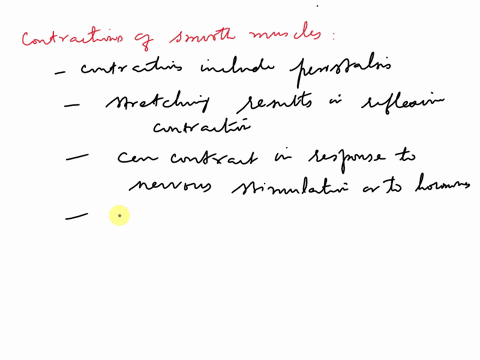 Contractions of smooth muscles :
- contractions include peristalsis
- stretching results in reflexive
contraction
- Can contract in response to
nervous stimulation or to hormones
-